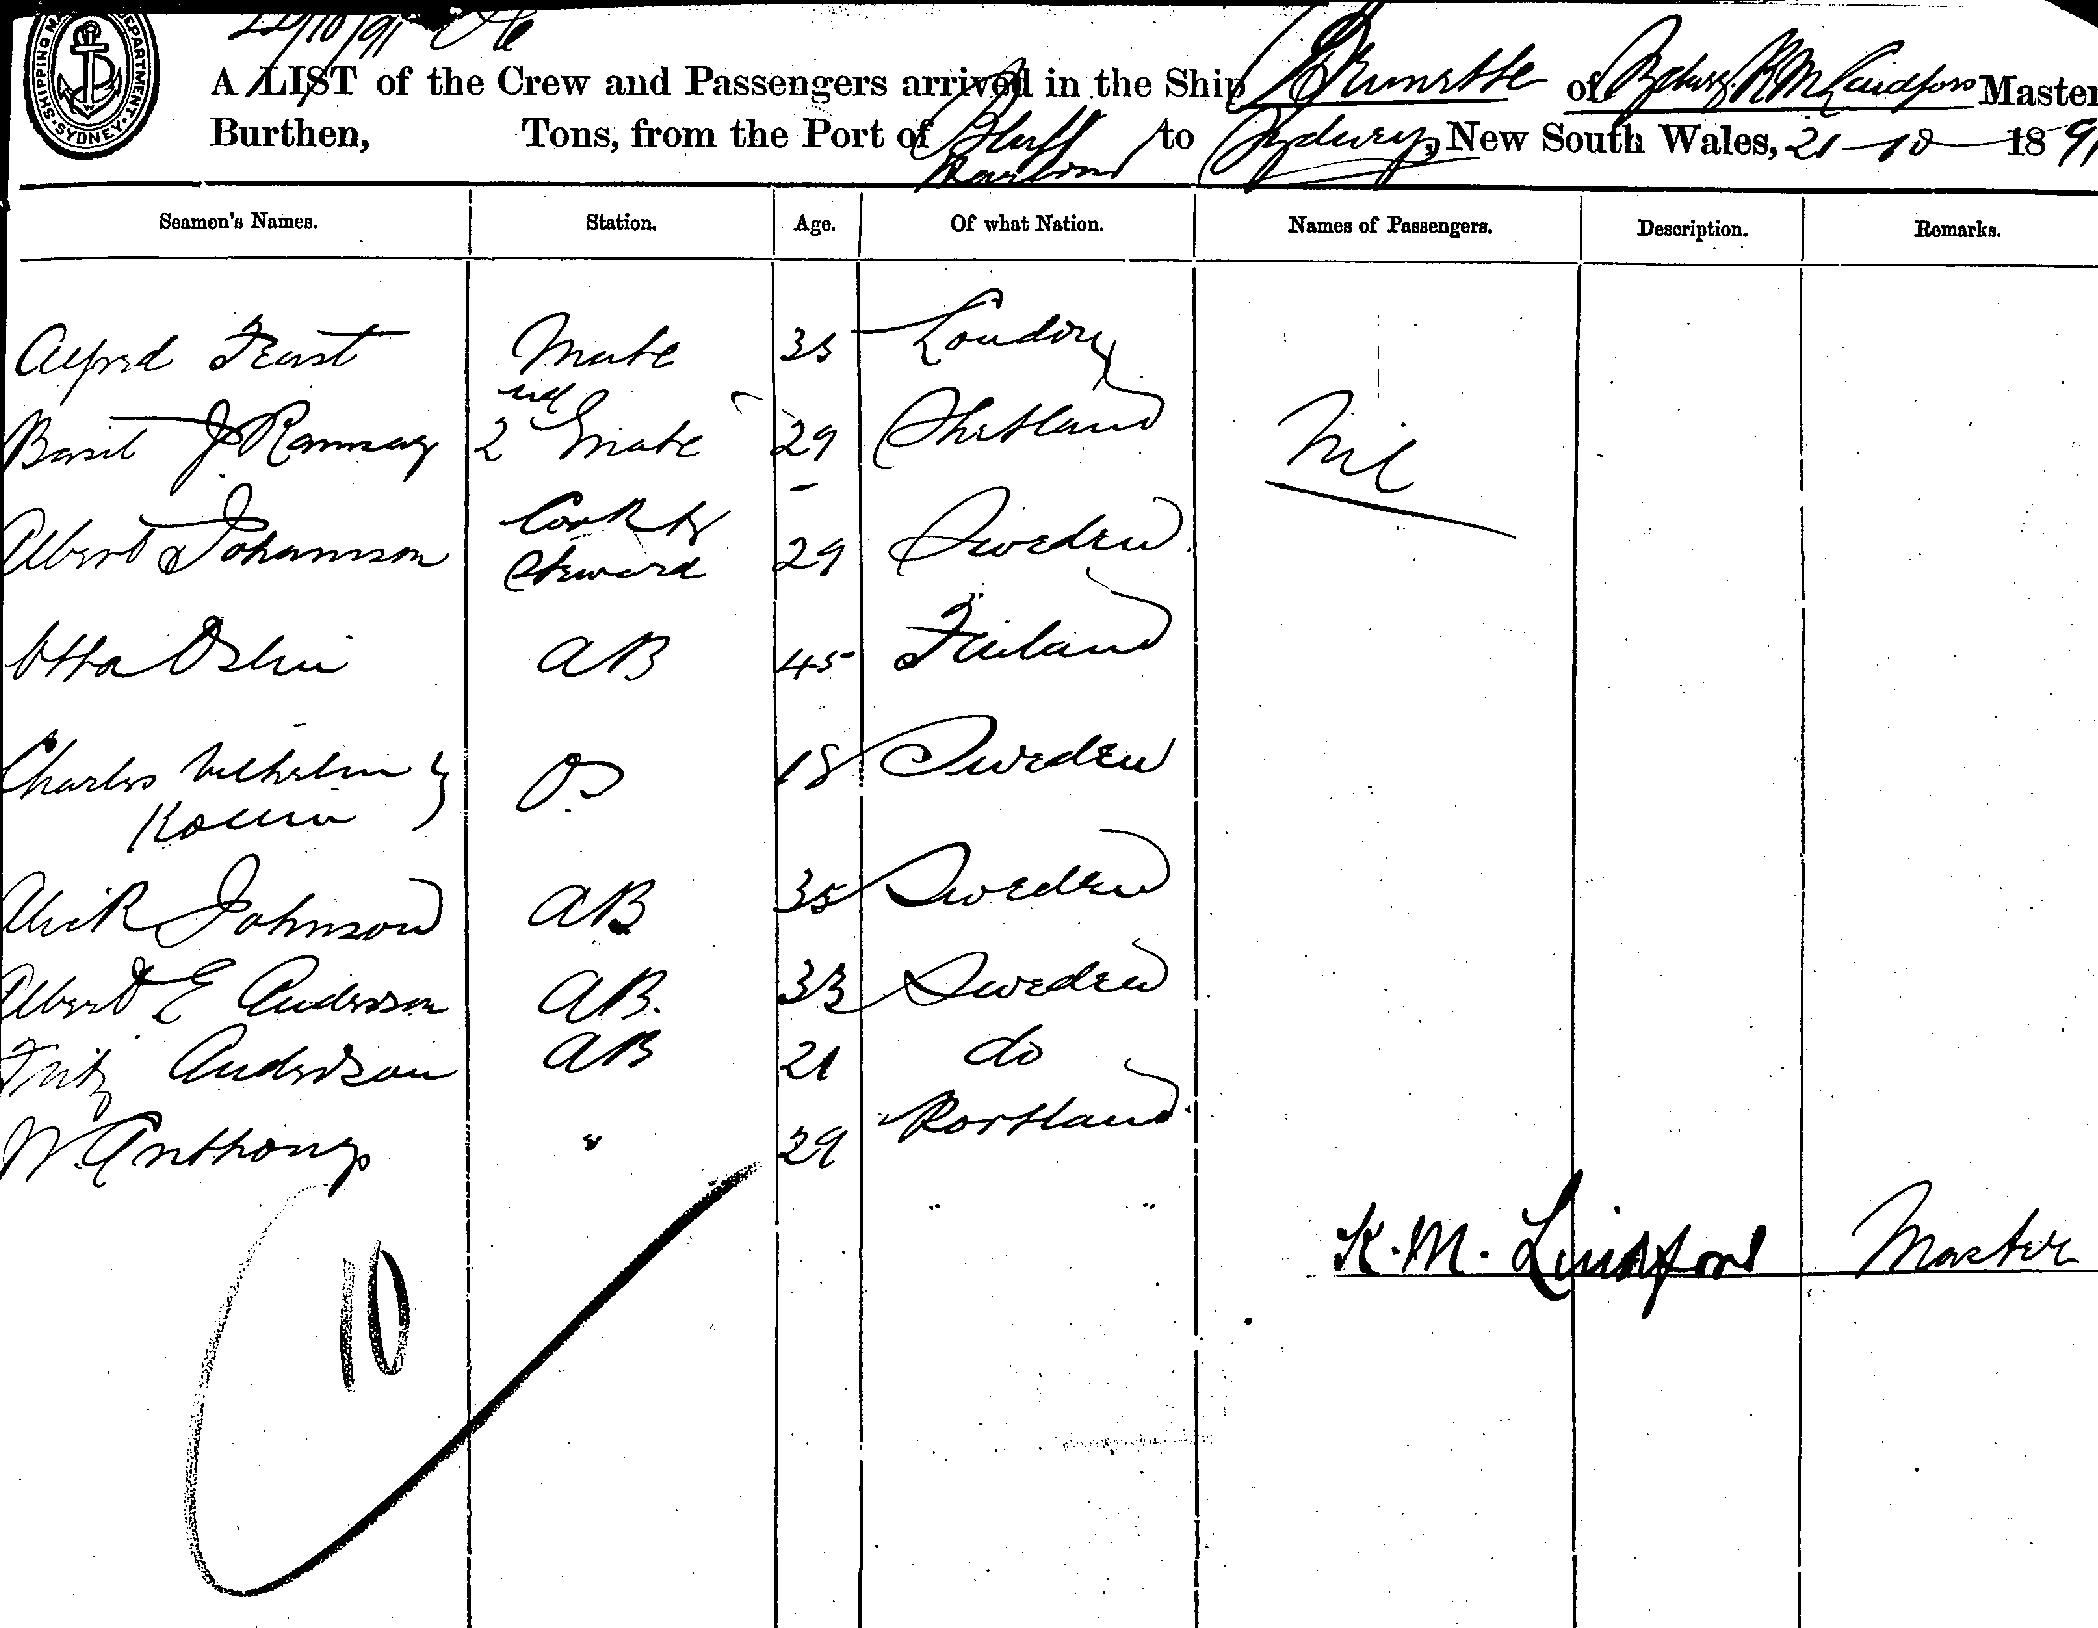 SHIPPING M PARTMENT. SYDNEY.
A LIST of the Crew and Passengers arrived in the Ship Brunette of Sydney K M Lindfors Master
Burthen, Tons, from the Port of Bluff Harbour to Sydney, New South Wales, 21-10-1891
Seamen's Names. Station. Age. Of what Nation. Names of Passengers. Description. Remarks.
Alfred Feast Mate 35 London
Basil J Ramsay 2nd Mate 29 Shetland Nil
Albert Johannson Cook & Steward 29 Sweden
Otto AB 45 Finland
Charles Vilhelm OS 18 Sweden
Johnson AB 35 Sweden
Albert E Anderson AB. 33 Sweden
Fritz Anderson AB 21 do
W. Anthony " 29 Portland
K. M. Lindfors Master
10